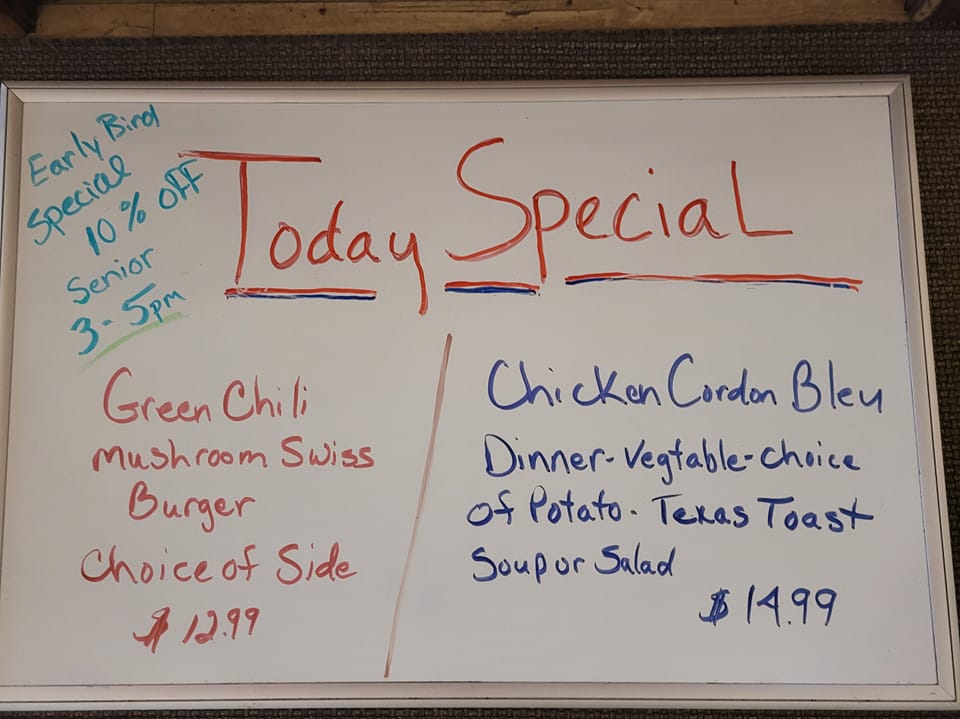 Early Bird
Special
10% OFF
Senior
3-5pm
Today Special
Green Chili
Mushroom Swiss
Burger
Choice of Side
$12.99
Chicken Cordon Bleu
Dinner-Vegtable-Choice
of Potato. Texas Toast
Soup or Salad
$14.99